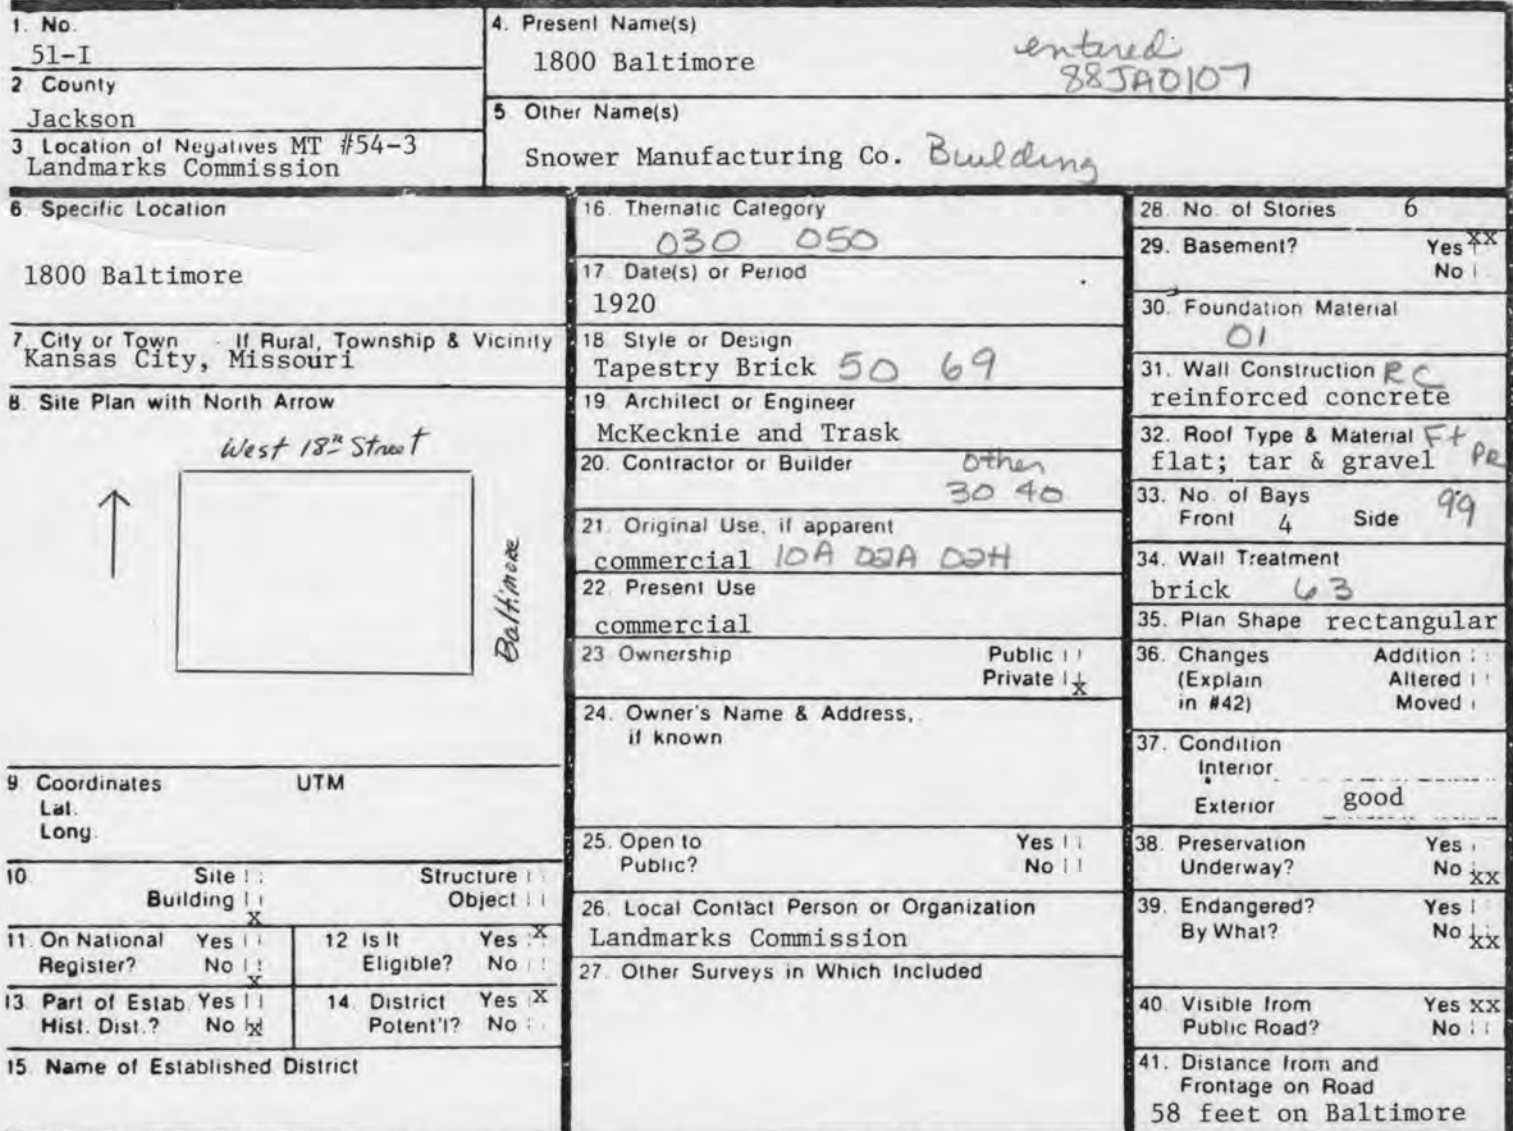 1. No.
51-I
2 County
Jackson
3 Location of Negatives MT #54-3
Landmarks Commission
4. Present Name(s)
1800 Baltimore
entered
88JA0107
5 Other Name(s)
Snower Manufacturing Co. Building
6. Specific Location
1800 Baltimore
7. City or Town If Rural, Township & Vicinity
Kansas City, Missouri
8. Site Plan with North Arrow
West 18th Street
Baltimore
9 Coordinates UTM
Lat.
Long.
10. Site Structure
Building x Object
11. On National Yes
Register? No x
12 Is It Yes x
Eligible? No
13. Part of Estab. Yes
Hist. Dist.? No x
14. District Yes x
Potent'l? No
15. Name of Established District
16. Thematic Category
030 050
17. Date(s) or Period
1920
18 Style or Design
Tapestry Brick 50 69
19. Architect or Engineer
McKecknie and Trask
20. Contractor or Builder other
30 40
21. Original Use, if apparent
commercial 10A 02A 02H
22. Present Use
commercial
23 Ownership Public
Private x
24. Owner's Name & Address,
if known
25. Open to Yes
Public? No
26. Local Contact Person or Organization
Landmarks Commission
27. Other Surveys in Which Included
28. No. of Stories 6
29. Basement? Yes xx
No
30. Foundation Material
01
31. Wall Construction RC
reinforced concrete
32. Roof Type & Material Ft
flat; tar & gravel PR
33. No. of Bays 99
Front 4 Side
34. Wall Treatment
brick 63
35. Plan Shape rectangular
36. Changes Addition
(Explain Altered
in #42) Moved
37. Condition
Interior
Exterior good
38. Preservation Yes
Underway? No xx
39. Endangered? Yes
By What? No xx
40. Visible from Yes xx
Public Road? No
41. Distance from and
Frontage on Road
58 feet on Baltimore